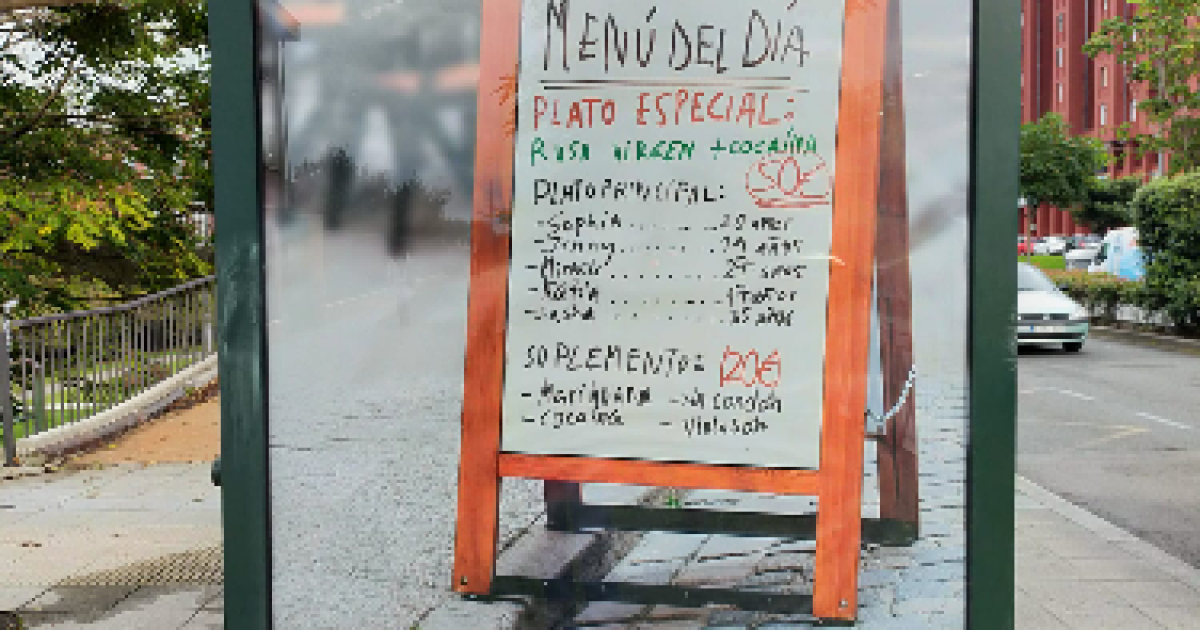 MENÚ DEL DÍA
PLATO ESPECIAL:
RUSA VIRGEN + COCAÍNA
50€
PLATO PRINCIPAL:
-Sophia........20 años
-Jenny........19 años
años
-Katia........17 años
-Sasha........15 años
SUPLEMENTO: 120€
-Marihuana -sin condón
-cocaína - violación